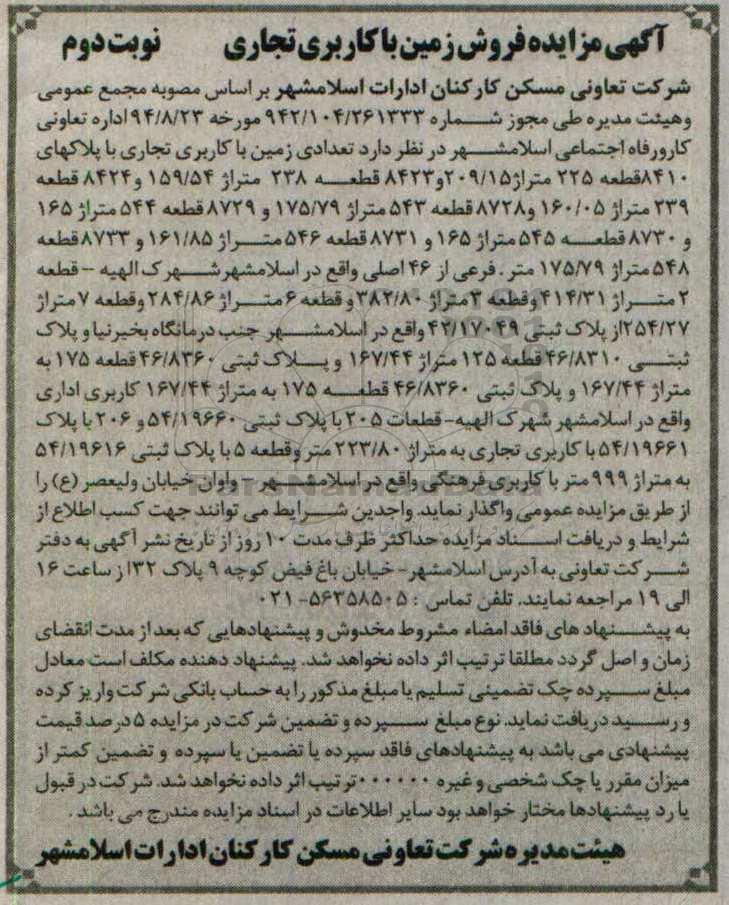 آگهی مزایده فروش زمین با کاربری تجاری نوبت دوم
شرکت تعاونی مسکن کارکنان ادارات اسلامشهر بر اساس مصوبه مجمع عمومی
وهیئت مدیره طی مجوز شماره ۹۴۲/۱۰۴/۲۶۱۳۳۳ مورخه ۹۴/۸/۲۳ اداره تعاونی
کارورفاه اجتماعی اسلامشهر در نظر دارد تعدادی زمین با کاربری تجاری با پلاکهای
۸۴۱۰قطعه ۲۲۵ متراژ۲۰۹/۱۵و۸۴۲۳ قطعه ۲۳۸ متراژ ۱۵۹/۵۴ و۸۴۲۴ قطعه
۲۳۹ متراژ ۱۶۰/۰۵ و۸۷۲۸ قطعه ۵۴۳ متراژ ۱۷۵/۷۹ و ۸۷۲۹ قطعه ۵۴۴ متراژ ۱۶۵
و ۸۷۳۰ قطعه ۵۴۵ متراژ ۱۶۵ و ۸۷۳۱ قطعه ۵۴۶ متراژ ۱۶۱/۸۵ و ۸۷۳۳ قطعه
۵۴۸ متراژ ۱۷۵/۷۹ متر. فرعی از ۴۶ اصلی واقع در اسلامشهر شهرک الهیه - قطعه
۲ متراژ ۴۱۴/۳۱ وقطعه ۳متراژ ۳۸۲/۸۰ و قطعه ۶ متراژ ۲۸۴/۸۶ وقطعه ۷ متراژ
۲۵۴/۲۷از پلاک ثبتی ۴۲/۱۷۰۴۹ واقع در اسلامشهر جنب درمانگاه بخیرنیا و پلاک
ثبتی ۴۶/۸۳۱۰ قطعه ۱۲۵ متراژ ۱۶۷/۴۴ و پلاک ثبتی ۴۶/۸۳۶۰ قطعه ۱۷۵ به
متراژ ۱۶۷/۴۴ و پلاک ثبتی ۴۶/۸۳۶۰ قطعه ۱۷۵ به متراژ ۱۶۷/۴۴ کاربری اداری
واقع در اسلامشهر شهرک الهیه- قطعات ۲۰۵ با پلاک ثبتی ۵۴/۱۹۶۶۰ و ۲۰۶ با پلاک
۵۴/۱۹۶۶۱ با کاربری تجاری به متراژ ۲۲۳/۸۰ متر وقطعه ۵ با پلاک ثبتی ۵۴/۱۹۶۱۶
به متراژ ۹۹۹ متر با کاربری فرهنگی واقع در اسلامشهر - واوان خیابان ولیعصر(ع) را
از طریق مزایده عمومی واگذار نماید. واجدین شرایط می توانند جهت کسب اطلاع از
شرایط و دریافت اسناد مزایده حداکثر ظرف مدت ۱۰ روز از تاریخ نشر آگهی به دفتر
شرکت تعاونی به آدرس اسلامشهر- خیابان باغ فیض کوچه ۹ پلاک ۳۲ از ساعت ۱۶
الی ۱۹ مراجعه نمایند. تلفن تماس : ۵۶۳۵۸۵۰۵-۰۲۱
به پیشنهاد های فاقد امضاء مشروط مخدوش و پیشنهادهایی که بعد از مدت انقضای
زمان و اصل گردد مطلقا ترتیب اثر داده نخواهد شد. پیشنهاد دهنده مکلف است معادل
مبلغ سپرده چک تضمینی تسلیم یا مبلغ مذکور را به حساب بانکی شرکت واریز کرده
و رسید دریافت نماید. نوع مبلغ سپرده و تضمین شرکت در مزایده ۵ درصد قیمت
پیشنهادی می باشد به پیشنهادهای فاقد سپرده یا تضمین یا سپرده و تضمین کمتر از
میزان مقرر یا چک شخصی و غیره ۰۰۰۰۰۰ ترتیب اثر داده نخواهد شد. شرکت در قبول
یا رد پیشنهادها مختار خواهد بود سایر اطلاعات در اسناد مزایده مندرج می باشد .
هیئت مدیره شرکت تعاونی مسکن کارکنان ادارات اسلامشهر